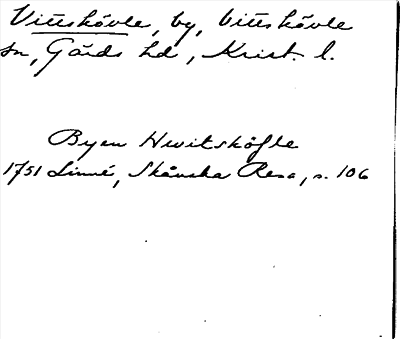 Vittskövle, by, Vittskövle
sn, Gärds hd, Krist. l.
Byen Hwitsköfle
1751 Linné, Skånska Resa, s. 106